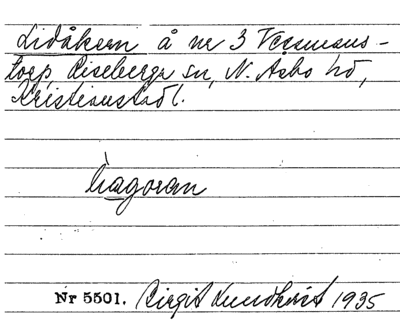 Lidåkern å nr 3 Værmans-
torp, Riseberga sn, N. Asbo hd,
Kristianstad l.
lìægoran
Nr 5501. Birgit Lundkvist 1935